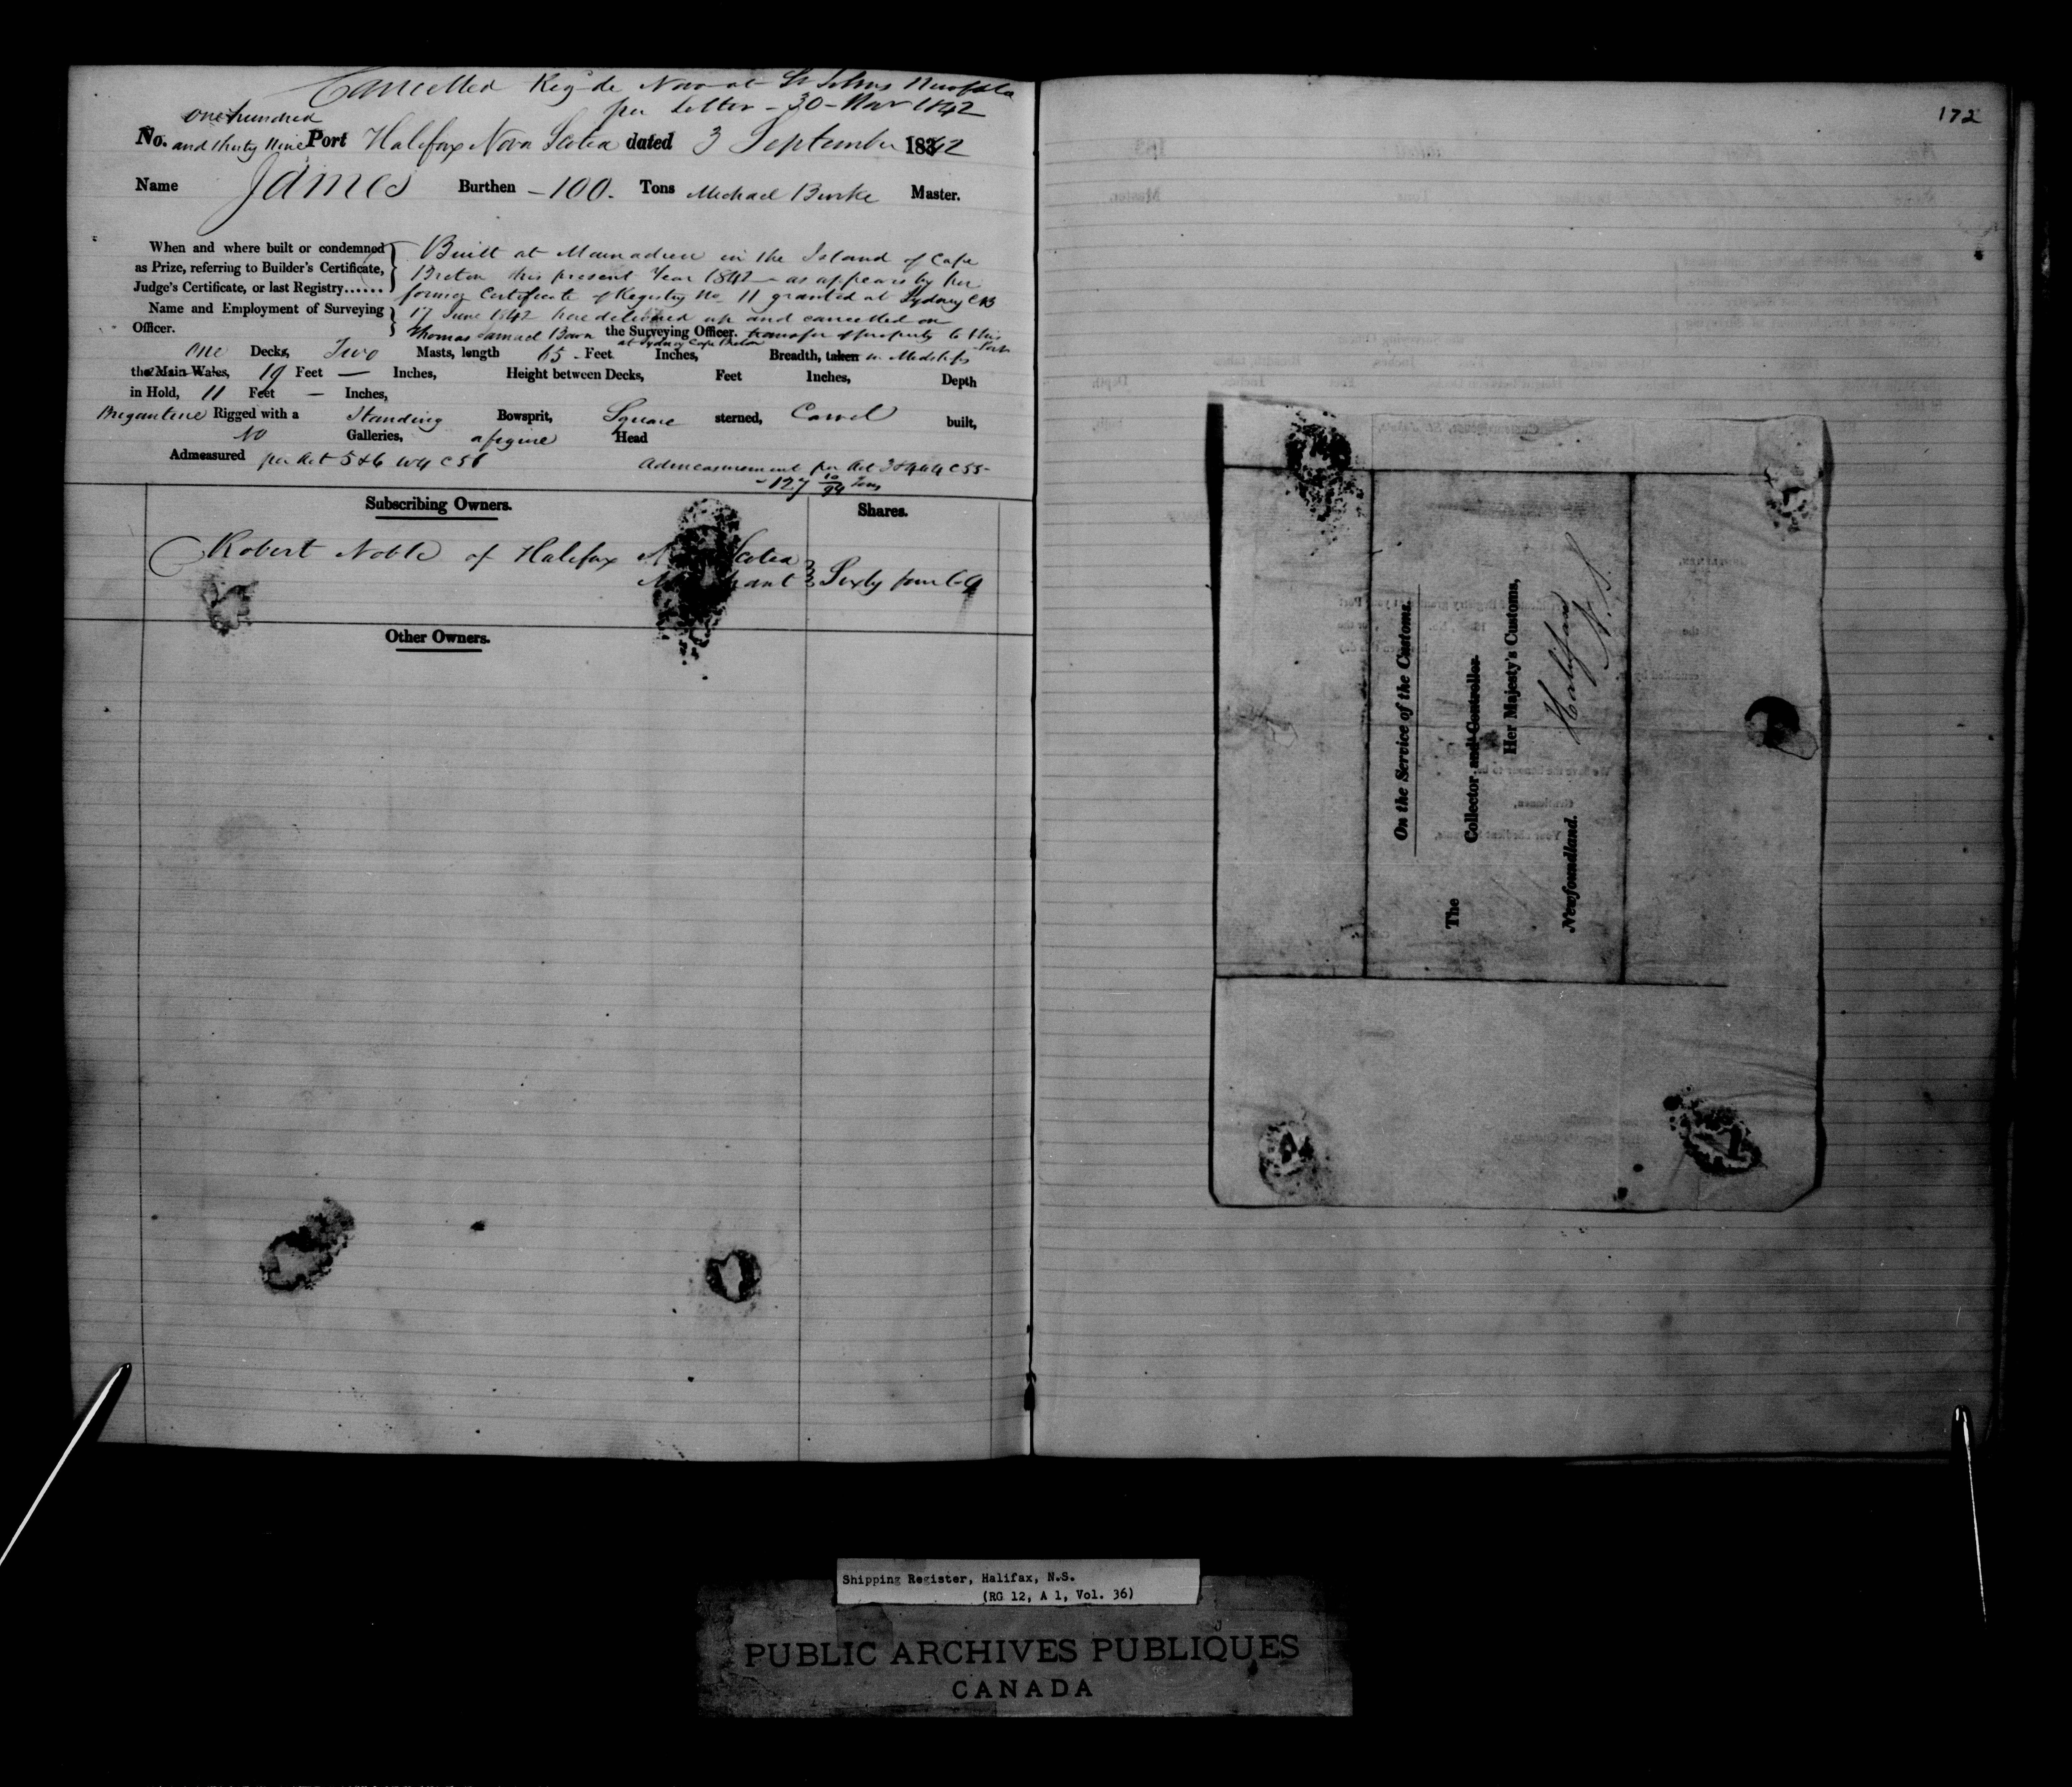 Cancelled Reg de Novo at St Johns Newfdld
per Letter - 30 - Nov 1842
one hundred
No. and thirty Nine Port Halifax Nova Scotia dated 3 September 1842
Name James Burthen - 100 - Tons Michael Burke Master.
When and where built or condemned
as Prize, referring to Builder's Certificate,
Judge's Certificate, or last Registry......
Built at Mainadieu in the Island of Cape
Breton this present Year 1842 - as appears by her
former Certificate of Registry No 11 granted at Sydney CB
17 June 1842 here delivered up and cancelled on
transfer of property to this Port
Name and Employment of Surveying
Officer.
Thomas Samuel Bown the Surveying Officer.
at Sydney Cape Breton
One Decks, Two Masts, length 65 - Feet Inches, Breadth, taken in Midships
the Main Wales, 19 Feet — Inches, Height between Decks, Feet Inches, Depth
in Hold, 11 Feet — Inches,
Brigantine Rigged with a Standing Bowsprit, Square sterned, Carvel built,
No Galleries, a figure Head
Admeasured per Act 5 & 6 W4 C 56
Admeasurement per Act 3 & 4 W4 C 55 -
- 127 10/94 Tons
Subscribing Owners.
Shares.
Robert Noble of Halifax Nova Scotia
Merchant
Sixty four 64
Other Owners.
172
On the Service of the Customs.
The
Collector and Controller
Her Majesty's Customs,
Halifax
N. S.
Newfoundland.
Shipping Register, Halifax, N.S.
(RG 12, A 1, Vol. 36)
PUBLIC ARCHIVES PUBLIQUES
CANADA